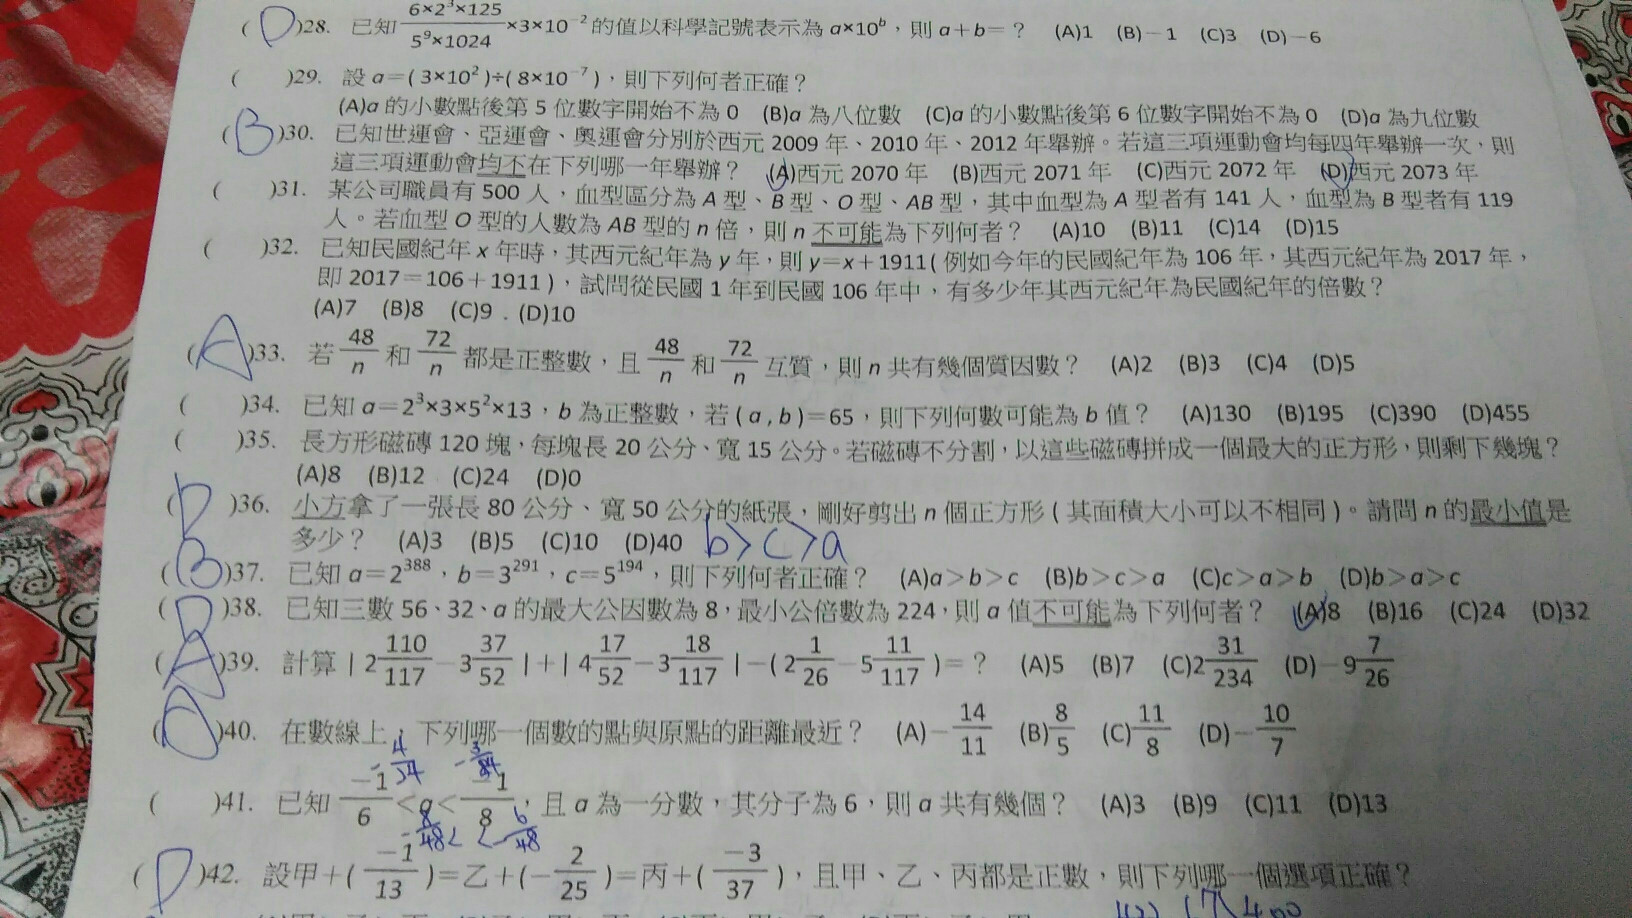 (D)28. 已知 6×2³×125 / 5⁹×1024 ×3×10⁻² 的值以科學記號表示為 a×10ᵇ，則 a＋b＝？ (A)1 (B)－1 (C)3 (D)－6
( )29. 設 a＝(3×10²)÷(8×10⁻⁷)，則下列何者正確？
(A)a 的小數點後第 5 位數字開始不為 0 (B)a 為八位數 (C)a 的小數點後第 6 位數字開始不為 0 (D)a 為九位數
(B)30. 已知世運會、亞運會、奧運會分別於西元 2009 年、2010 年、2012 年舉辦。若這三項運動會均每四年舉辦一次，則
這三項運動會均不在下列哪一年舉辦？ (A)西元 2070 年 (B)西元 2071 年 (C)西元 2072 年 (D)西元 2073 年
( )31. 某公司職員有 500 人，血型區分為 A 型、B 型、O 型、AB 型，其中血型為 A 型者有 141 人，血型為 B 型者有 119
人。若血型 O 型的人數為 AB 型的 n 倍，則 n 不可能為下列何者？ (A)10 (B)11 (C)14 (D)15
( )32. 已知民國紀年 x 年時，其西元紀年為 y 年，則 y＝x＋1911(例如今年的民國紀年為 106 年，其西元紀年為 2017 年，
即 2017＝106＋1911)，試問從民國 1 年到民國 106 年中，有多少年其西元紀年為民國紀年的倍數？
(A)7 (B)8 (C)9 . (D)10
(A)33. 若 48/n 和 72/n 都是正整數，且 48/n 和 72/n 互質，則 n 共有幾個質因數？ (A)2 (B)3 (C)4 (D)5
( )34. 已知 a＝2³×3×5²×13，b 為正整數，若(a , b)＝65，則下列何數可能為 b 值？ (A)130 (B)195 (C)390 (D)455
( )35. 長方形磁磚 120 塊，每塊長 20 公分、寬 15 公分。若磁磚不分割，以這些磁磚拼成一個最大的正方形，則剩下幾塊？
(A)8 (B)12 (C)24 (D)0
(D)36. 小方拿了一張長 80 公分、寬 50 公分的紙張，剛好剪出 n 個正方形(其面積大小可以不相同)。請問 n 的最小值是
多少？ (A)3 (B)5 (C)10 (D)40 b>c>a
(B)37. 已知 a＝2³⁸⁸，b＝3²⁹¹，c＝5¹⁹⁴，則下列何者正確？ (A)a＞b＞c (B)b＞c＞a (C)c＞a＞b (D)b＞a＞c
(D)38. 已知三數 56、32、a 的最大公因數為 8，最小公倍數為 224，則 a 值不可能為下列何者？ (A)8 (B)16 (C)24 (D)32
(A)39. 計算｜2 110/117 － 3 37/52｜＋｜4 17/52 － 3 18/117｜－(2 1/26 － 5 11/117)＝？ (A)5 (B)7 (C)2 31/234 (D)－9 7/26
( )40. 在數線上，下列哪一個數的點與原點的距離最近？ (A)－14/11 (B)8/5 (C)11/8 (D)－10/7
( )41. 已知 －1/6 ＜a＜ －1/8，且 a 為一分數，其分子為 6，則 a 共有幾個？ (A)3 (B)9 (C)11 (D)13
-8/48< <-6/48
(D)42. 設甲＋(－1/13)＝乙＋(－2/25)＝丙＋(－3/37)，且甲、乙、丙都是正數，則下列哪一個選項正確？